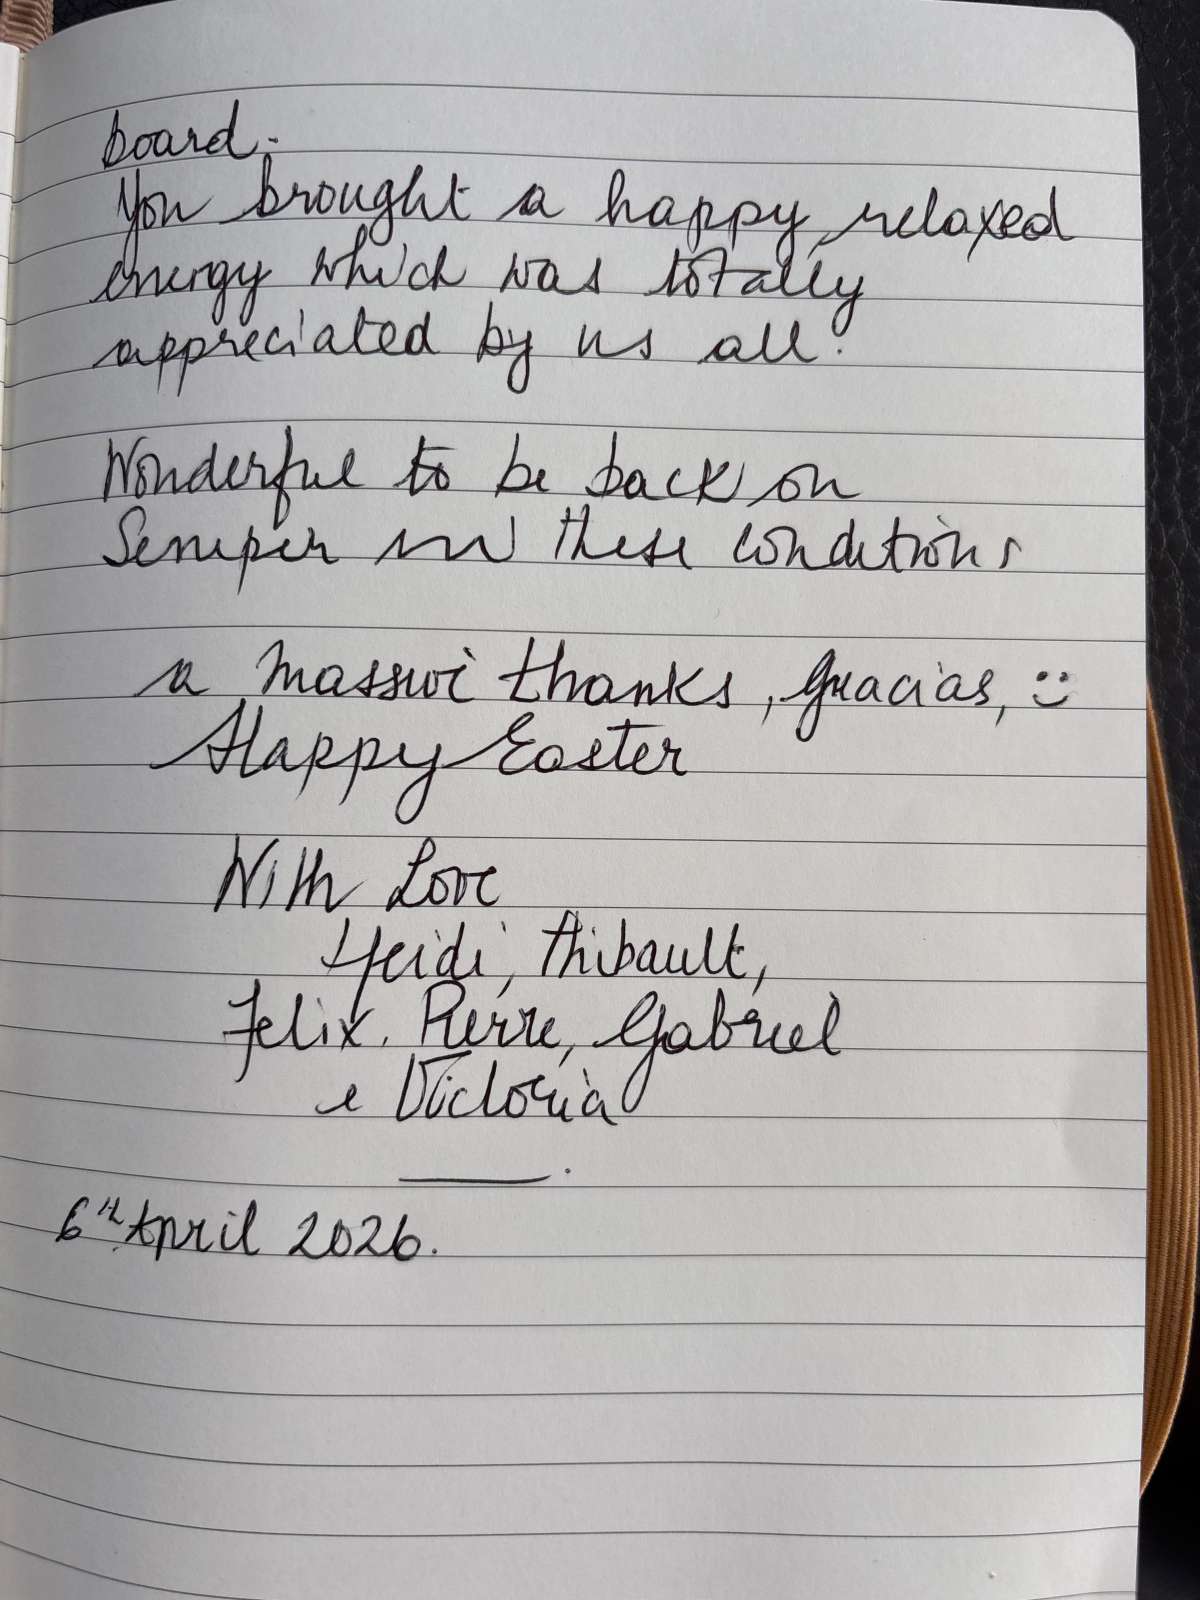 board.
You brought a happy, relaxed
energy which was totally
appreciated by us all.
Wonderful to be back on
Semper in these conditions
a massive thanks, Gracias, :)
Happy Easter
With Love
Heidi, Thibault,
Felix. Pierre, Gabriel
e Victoria
6th April 2026.